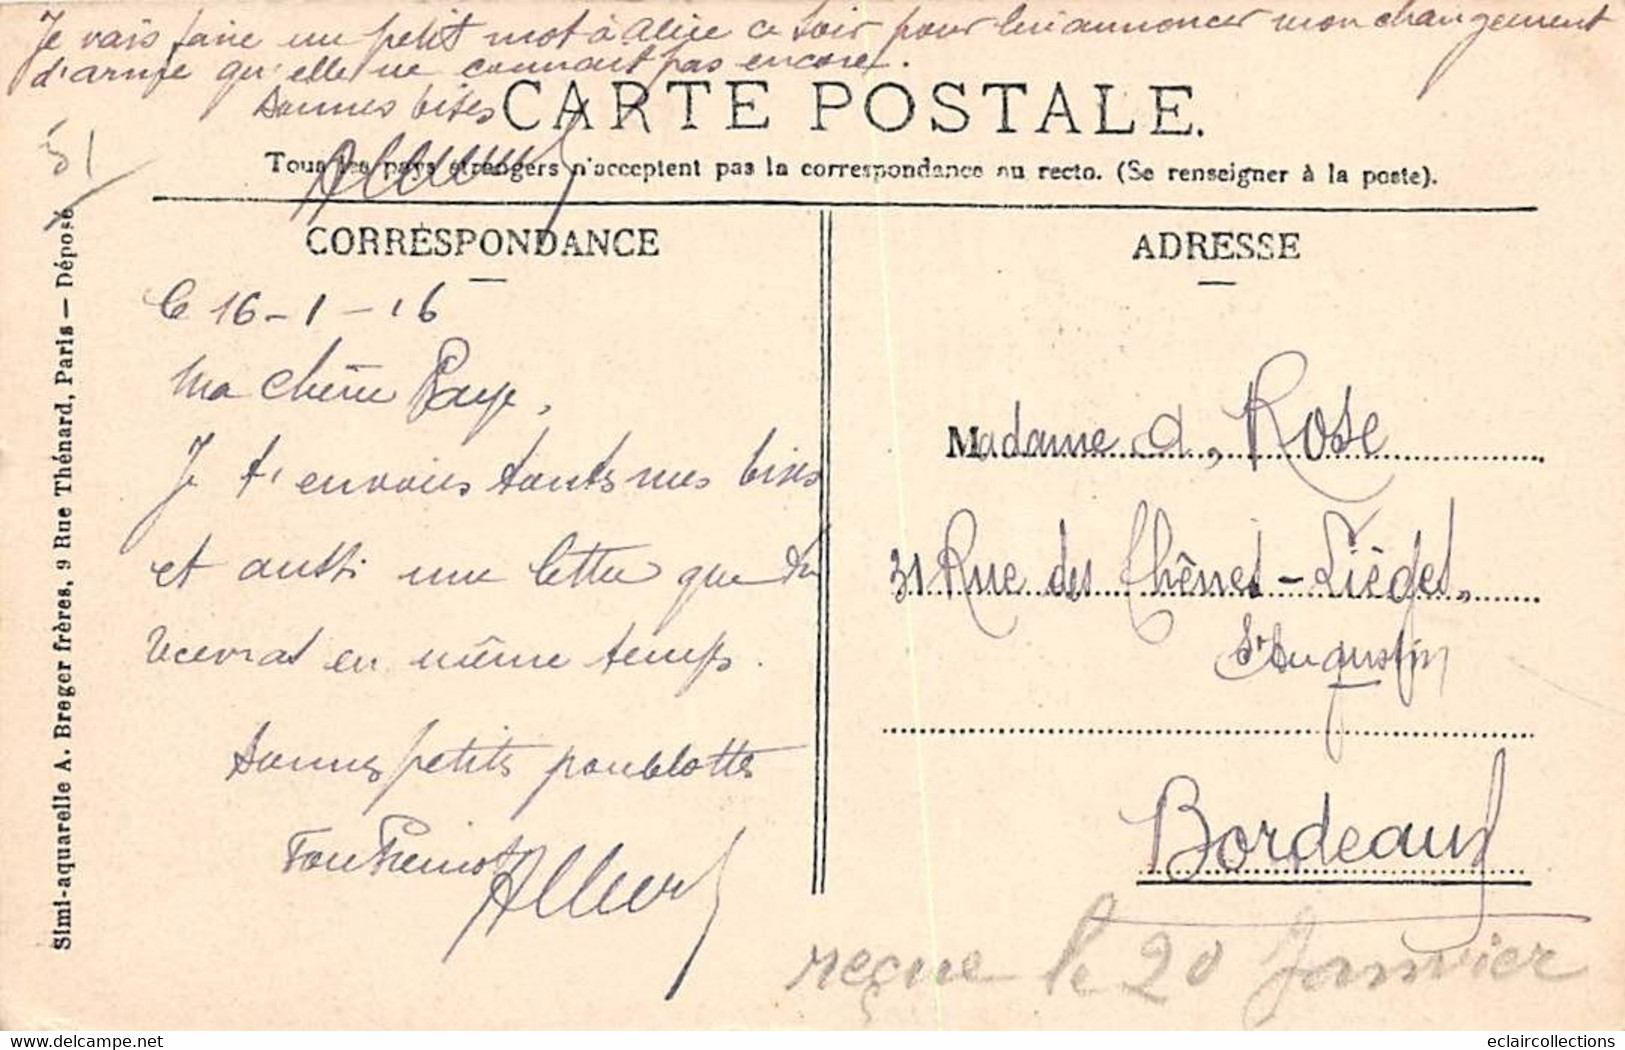 Je vais faire un petit mot à Alice ce soir pour lui annoncer mon changement
d'armée qu'elle ne connait pas encore.
bises
CARTE POSTALE.
Tous les pays étrangers n'acceptent pas la correspondance au recto. (Se renseigner à la poste).
51
Simi-aquarelle A. Breger frères, 9 Rue Thénard, Paris — Déposé
CORRESPONDANCE
Le 16-1-16
Ma chérie
Je t'envoies touts mes bises
et aussi une lettre que tu
recevras en même temps.
petits
ADRESSE
Madame A, Rose
31 Rue des Chênes-Lièges,
St Augustin
Bordeaux
reçue le 20 Janvier
eclaircollections